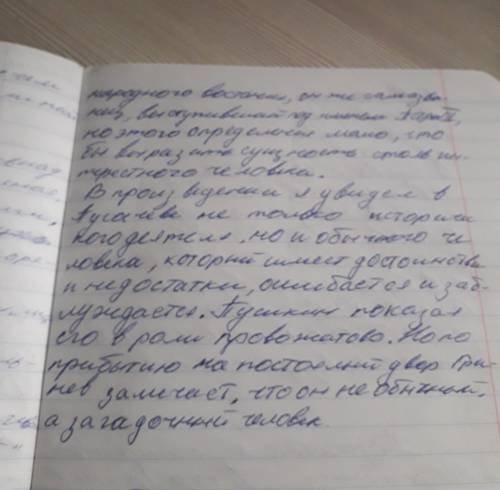 народного восстания, он же самозва-
нец, выступивший под именем Петра III,
но этого определения мало, что
бы выразить сущность столь ин-
тересного человека.
В произведении я увидел в
Пугачёве не только историчес
кого деятеля, но и обычного че
ловека, который имеет достоинства
и недостатки, ошибается и заб-
луждается. Пушкин показал
его в роли провожатова. Но по
прибытию на постоялый двор Гри-
нев замечает, что он не обычный,
а загадочный человек